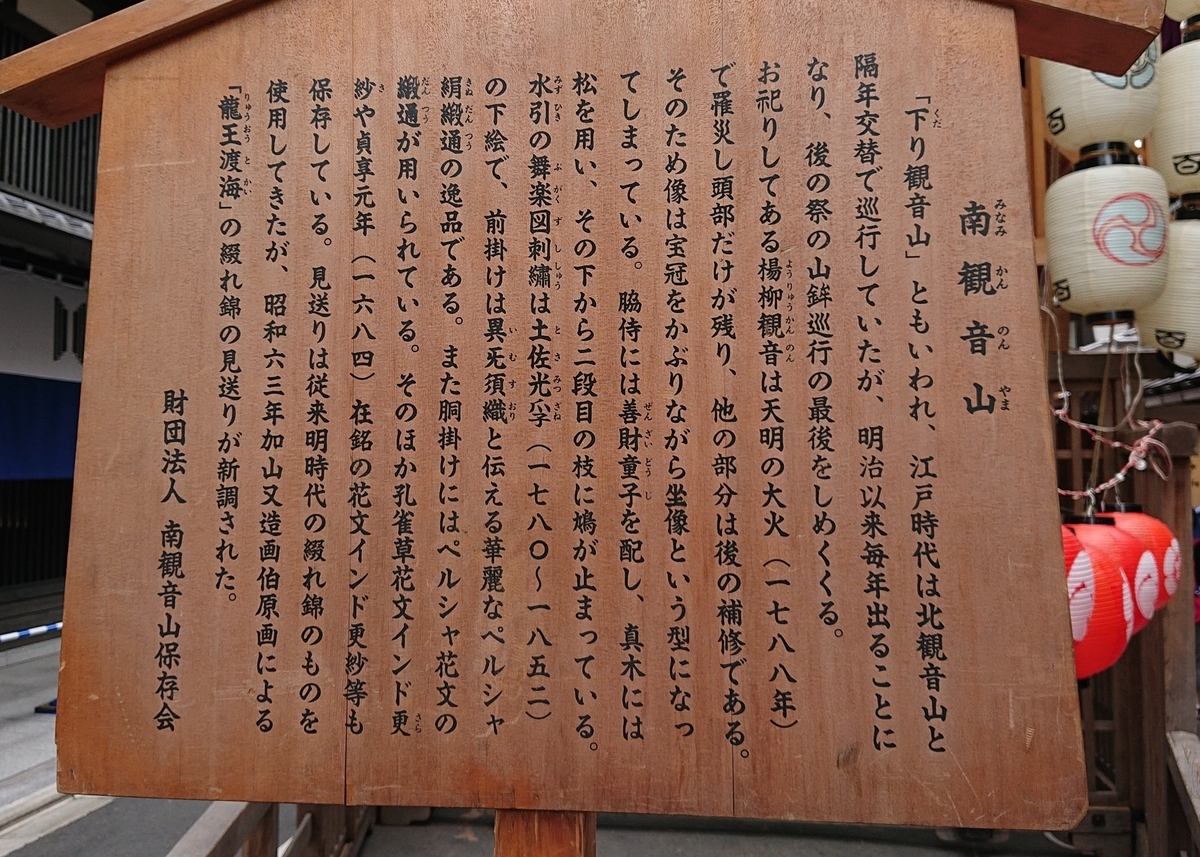 南観音山
みなみ かん のん やま
「下り観音山」ともいわれ、江戸時代は北観音山と
くだ
隔年交替で巡行していたが、明治以来毎年出ることに
なり、後の祭の山鉾巡行の最後をしめくくる。
お祀りしてある楊柳観音は天明の大火（一七八八年）
ようりゅうかんのん
で罹災し頭部だけが残り、他の部分は後の補修である。
そのため像は宝冠をかぶりながら坐像という型になっ
てしまっている。脇侍には善財童子を配し、真木には
ぜんざいどうじ
松を用い、その下から二段目の枝に鳩が止まっている。
水引の舞楽図刺繡は土佐光孚（一七八〇〜一八五二）
みずひき ぶがくずししゅう とさみつざね
の下絵で、前掛けは異旡須織と伝える華麗なペルシャ
いむすおり
絹緞通の逸品である。また胴掛けにはペルシャ花文の
きぬだんつう
緞通が用いられている。そのほか孔雀草花文インド更
だんつう さら
紗や貞享元年（一六八四）在銘の花文インド更紗等も
さ
保存している。見送りは従来明時代の綴れ錦のものを
使用してきたが、昭和六三年加山又造画伯原画による
「龍王渡海」の綴れ錦の見送りが新調された。
りゅうおうとかい
財団法人 南観音山保存会
百
百